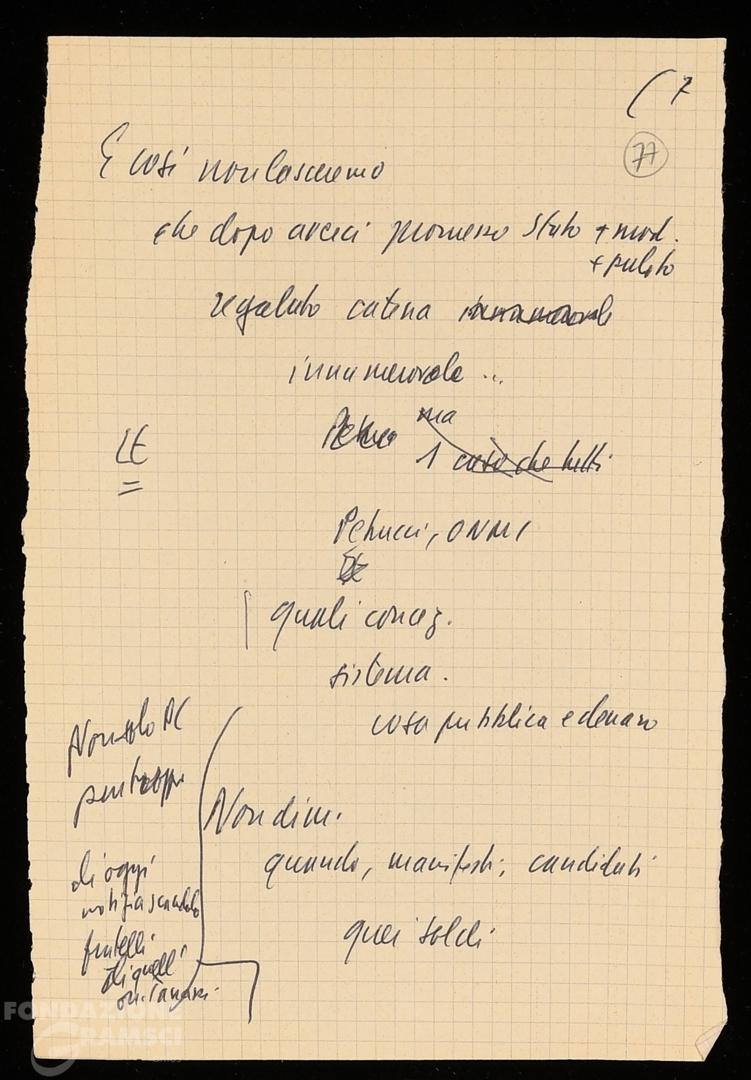 ( 7
77
E così non lasceremo
che dopo averci promesso Stato + mod.
+ pulito
regalato catena innumerevole
innumerevole ...
Petrucci ma
1 caso che tutti
LE
Petrucci, ONMI
quali concez.
sistema.
cosa pubblica e denaro
Non solo DC
purtroppo
Non dim.
quando, manifesti, candidati
di oggi
notizia scandalo
quei soldi
fratelli
di quelli
on. Tanassi
FONDAZIONE
GRAMSCI